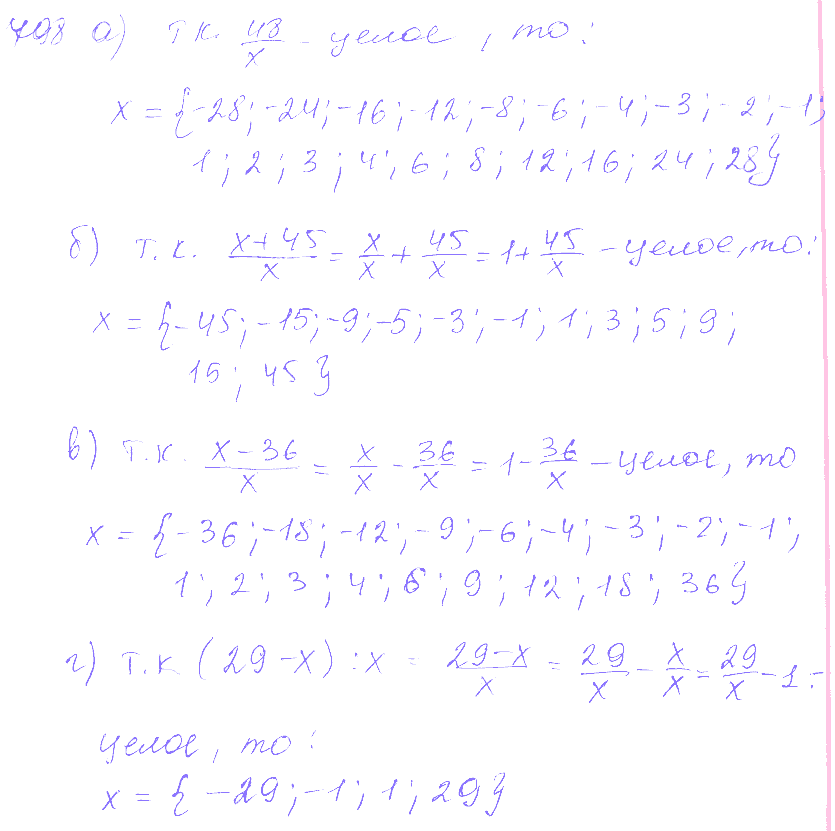 798 а) т.к. 48/x - целое, то:
x = {-28; -24; -16; -12; -8; -6; -4; -3; -2; -1;
1; 2; 3; 4; 6; 8; 12; 16; 24; 28}
б) т.к. (x+45)/x = x/x + 45/x = 1 + 45/x - целое, то:
x = {-45; -15; -9; -5; -3; -1; 1; 3; 5; 9;
15; 45}
в) т.к. (x-36)/x = x/x - 36/x = 1 - 36/x - целое, то
x = {-36; -18; -12; -9; -6; -4; -3; -2; -1;
1; 2; 3; 4; 6; 9; 12; 18; 36}
г) т.к (29-x) : x = (29-x)/x = 29/x - x/x = 29/x - 1 -
целое, то:
x = {-29; -1; 1; 29}